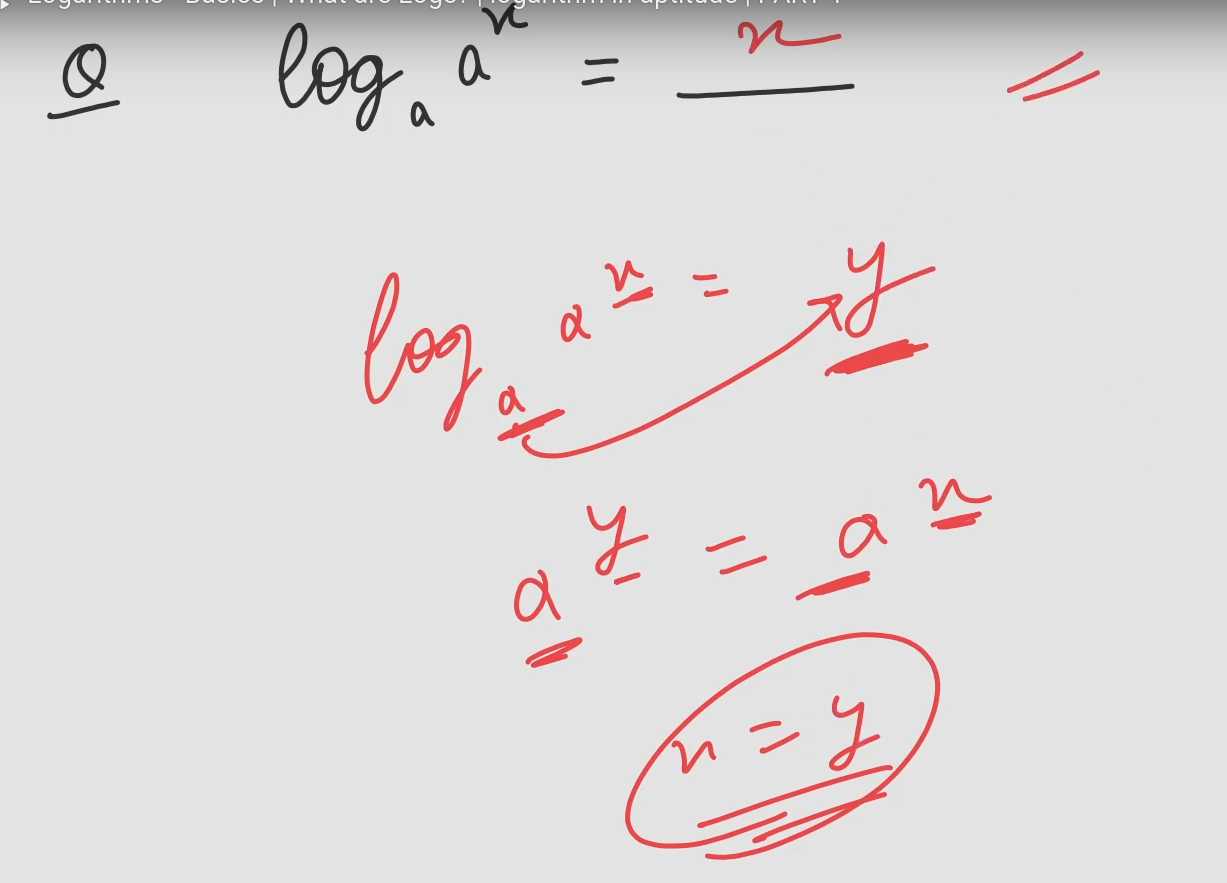 Logarithms - Basics | What are Logs? | logarithm in aptitude | PART 1
Q log_a a^x = x
log_a a^x = y
a^y = a^x
x = y